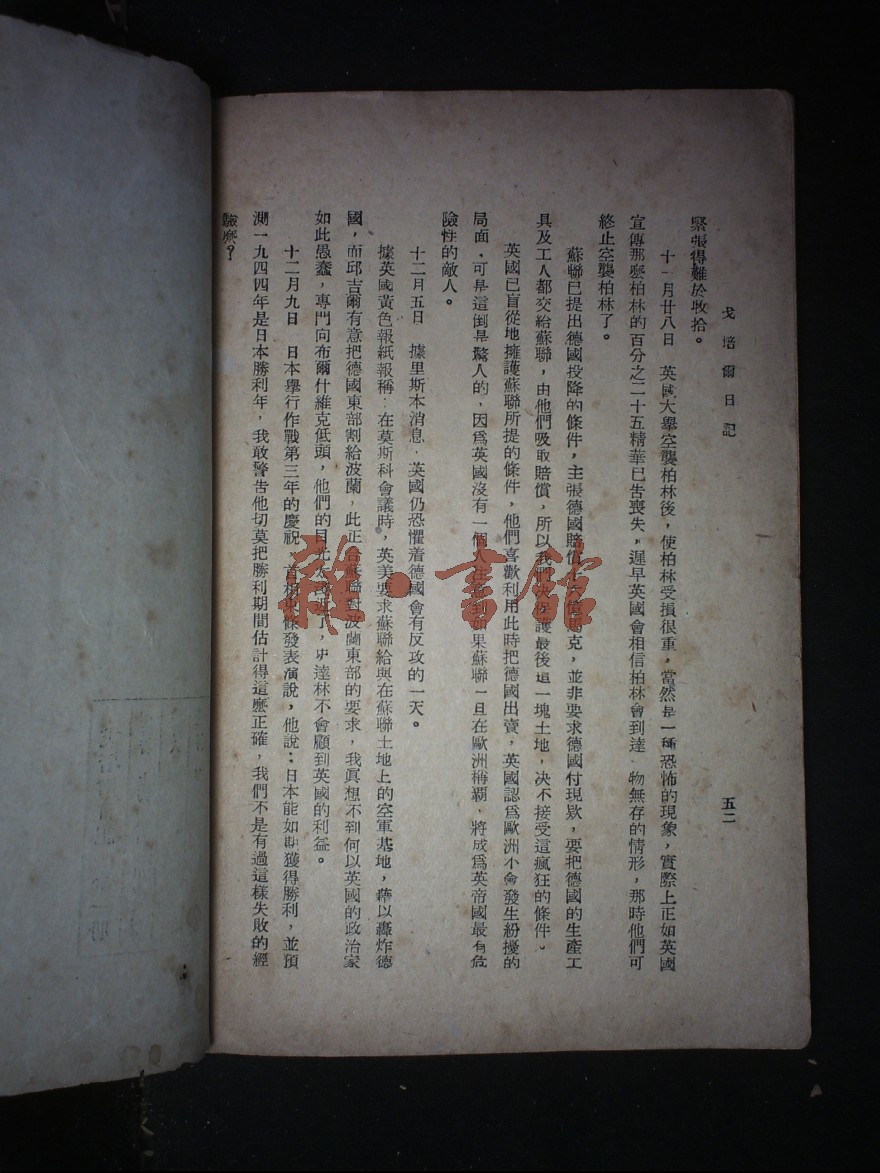 戈培爾日記
五二
緊張得難於收拾。
十一月廿八日 英國大舉空襲柏林後，使柏林受損很重，當然是一種恐怖的現象，實際上正如英國
宣傳那麼柏林的百分之二十五精華已告喪失，遲早英國會相信柏林會到達 物無存的情形，那時他們可
終止空襲柏林了。
蘇聯已提出德國投降的條件，主張德國賠償 億馬克，並非要求德國付現欵，要把德國的生產工
具及工人都交給蘇聯，由他們吸取賠償，所以我們決保護最後這一塊土地，决不接受這瘋狂的條件。
英國已盲從地擁護蘇聯所提的條件，他們喜歡利用此時把德國出賣，英國認爲歐洲不會發生紛擾的
局面，可是這倒是驚人的，因爲英國沒有一個人注意到如果蘇聯一旦在歐洲稱覇，將成爲英帝國最有危
險性的敵人。
十二月五日 據里斯本消息，英國仍恐懼着德國會有反攻的一天。
據英國黃色報紙報稱：在莫斯科會議時，英美要求蘇聯給與在蘇聯土地上的空軍基地，藉以轟炸德
國，而邱吉爾有意把德國東部割給波蘭，此正合蘇聯對波蘭東部的要求，我眞想不到何以英國的政治家
如此愚蠢，專門向布爾什維克低頭，他們的目光太 近了，史達林不會顧到英國的利益。
十二月九日 日本舉行作戰第三年的慶祝，首相東條發表演說，他說：日本能如期獲得勝利，並預
測一九四四年是日本勝利年，我敢警告他切莫把勝利期間估計得這麼正確，我們不是有過這樣失敗的經
驗麽？
雜·書館